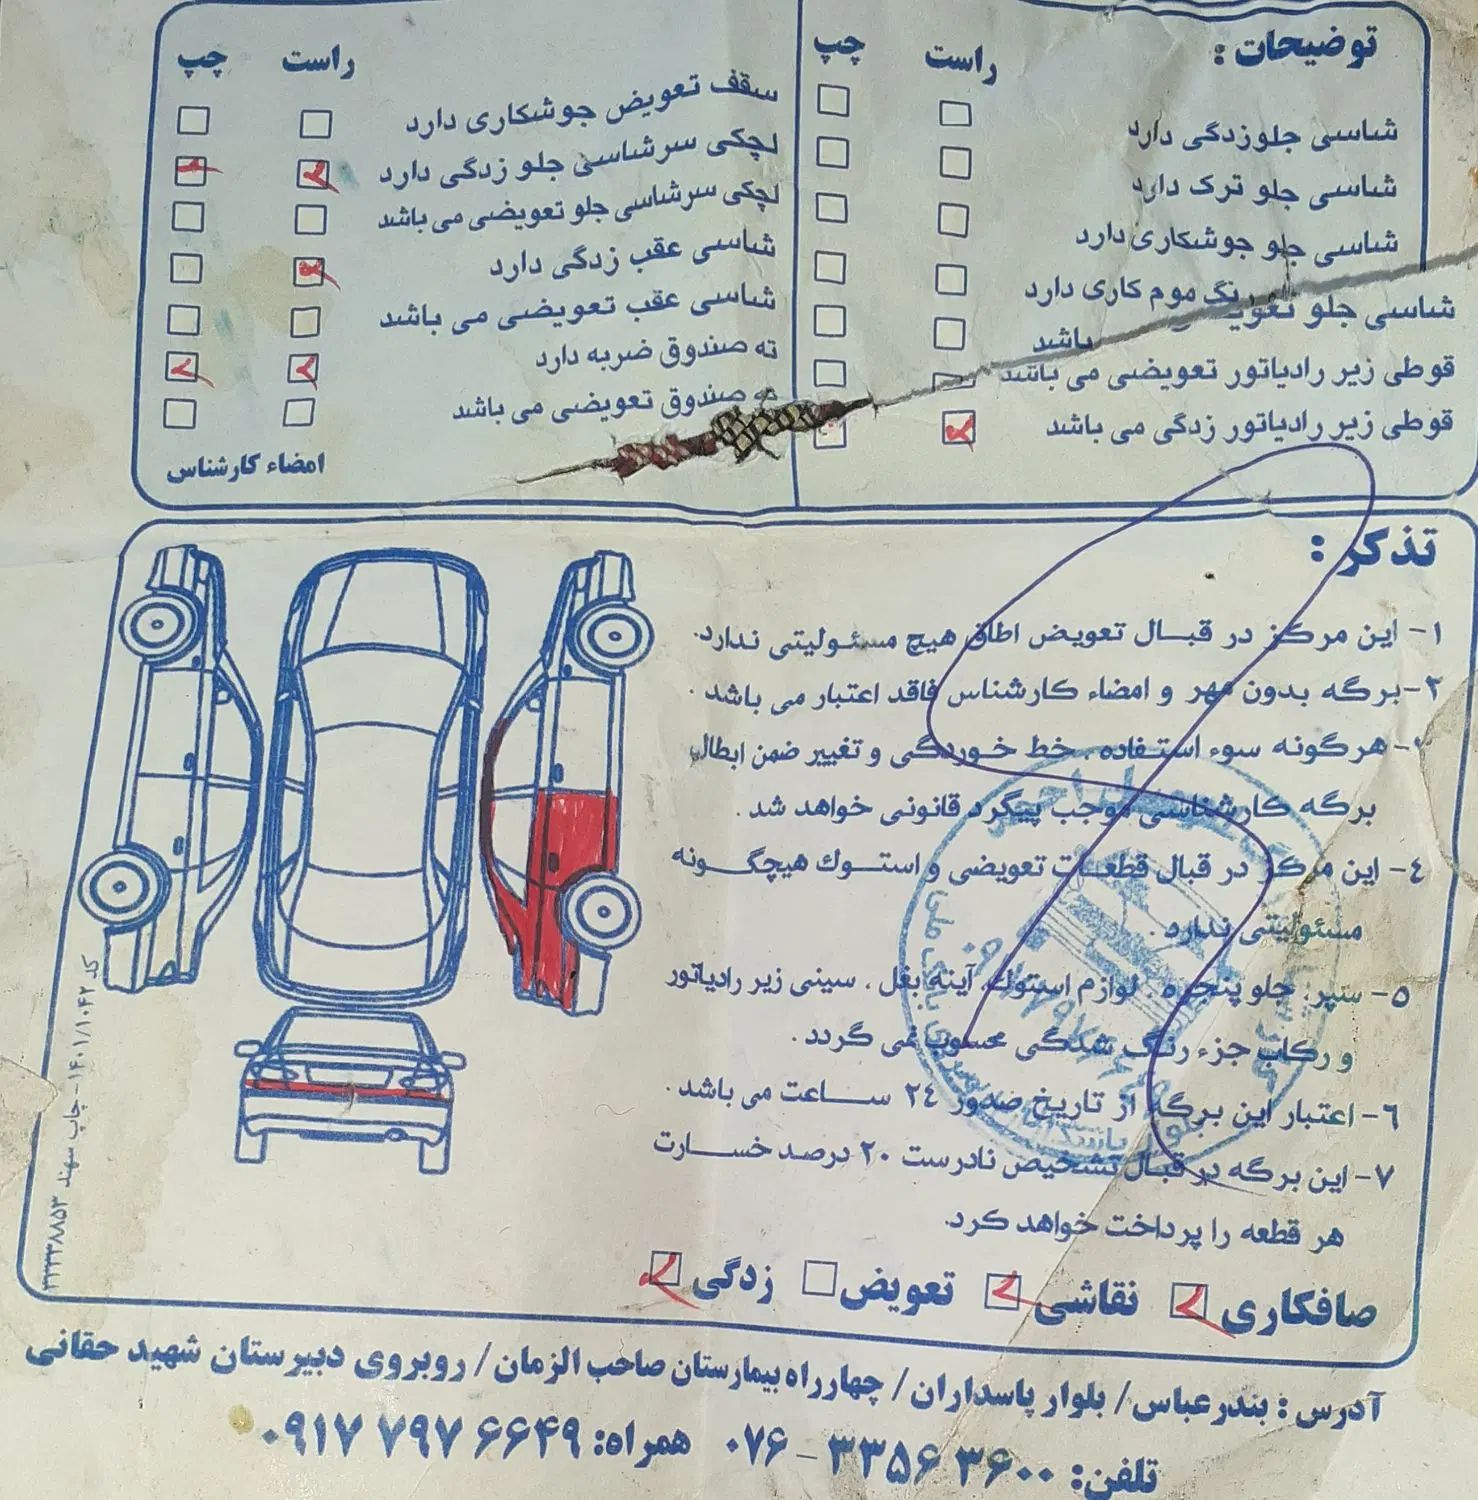 توضیحات :
راست چپ
شاسی جلوزدگی دارد
شاسی جلو ترک دارد
شاسی جلو جوشکاری دارد
رنگ موم کاری دارد
شاسی جلو
باشد
قوطی زیر رادیاتور تعویضی می باشد
قوطی زیر رادیاتور زدگی می باشد
راست چپ
سقف تعویض جوشکاری دارد
لچکی سرشاسی جلو زدگی دارد
لچکی سرشاسی جلو تعویضی می باشد
شاسی عقب زدگی دارد
شاسی عقب تعویضی می باشد
ته صندوق ضربه دارد
ته صندوق تعویضی می باشد
امضاء کارشناس
تذکر :
۱- این مرکز در قبال تعویض اطاق هیچ مسئولیتی ندارد.
۲- برگه بدون مهر و امضاء کارشناس فاقد اعتبار می باشد .
۳- هرگونه سوء استفاده ، خط خوردگی و تغییر ضمن ابطال
برگه کارشناسی موجب پیگرد قانونی خواهد شد .
٤- این مرکز در قبال قطعات تعویضی و استوك هیچگونه
مسئولیتی ندارد .
۵- سپر، جلو پنجره ، لوازم استوك، آینه بغل ، سینی زیر رادیاتور
و رکاب جزء رنگ شدگی محسوب نمی گردد .
۶- اعتبار این برگه از تاریخ صدور ۲٤ ساعت می باشد .
۷- این برگه در قبال تشخیص نادرست ۲۰ درصد خسارت
هر قطعه را پرداخت خواهد کرد.
صافکاری نقاشی تعویض زدگی
کد ۱۴۰۱/۱۰۴۲-چاپ سهند ۳۲۲۳۸۸۵۳
آدرس : بندرعباس/ بلوار پاسداران/ چهارراه بیمارستان صاحب الزمان/ روبروی دبیرستان شهید حقانی
تلفن: ۳۶۰۰ ۳۳۵۶ - ۰۷۶ همراه: ۶۶۴۹ ۷۹۷ ۰۹۱۷